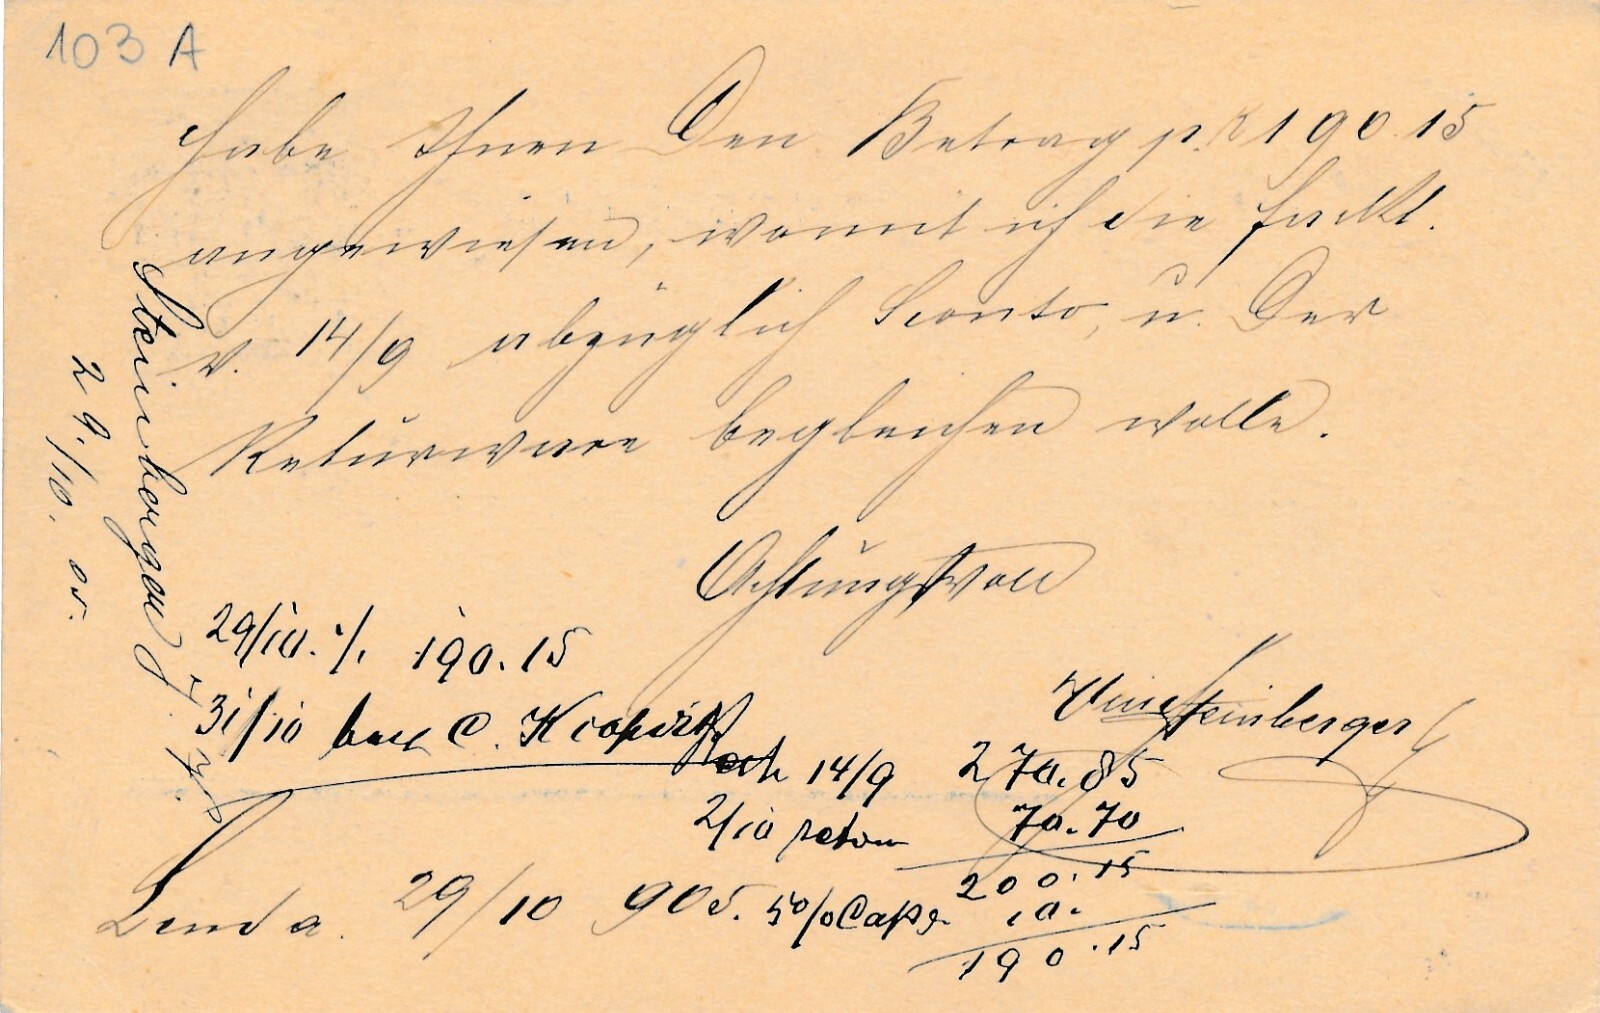 103 A
Habe Ihnen Den Betrag p. K 190.15
angewiesen, womit ich die Fackt.
v. 14/9 abzüglich Sconto, u. Der
Returware begleichen wolle.
Achtungsvoll
Steinberger
29./10. 05.
29/10. ·/. 190.15
31/10
14/9 270.85
2/10 retour 70.70
200.15
5%
10.
190.15
Lend a. 29/10 905.